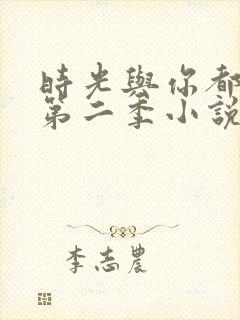 時光與你都
第二季小說
李志農